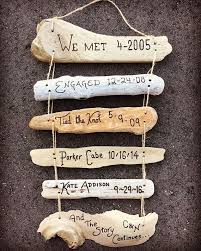 We Met 4-2005
Engaged 12-24-08
Tied the Knot 5-9-09
Parker Cabe 10/16/14
Kate Addison 9-29-16
And
The Story
Continues...